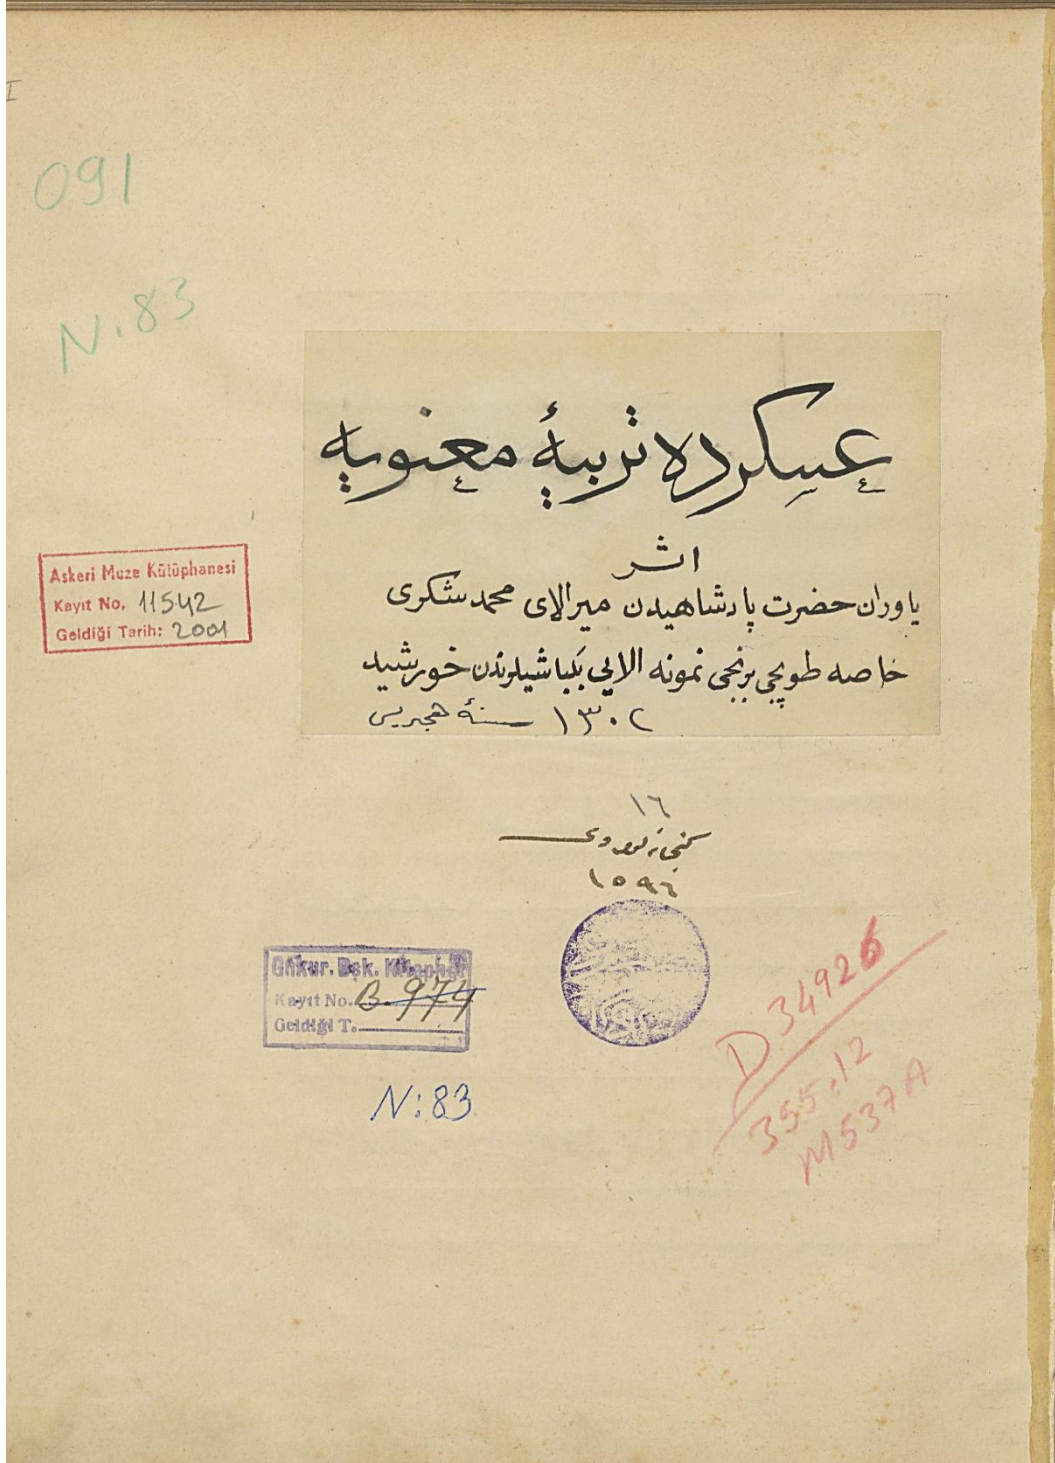 I
091
N.83
عسكرده تربيۀ معنويه
اثر
ياوران حضرت پادشاهيدن ميرالاى محمد شكرى
خاصه طوپجى برنجى نمونه الايى بكباشيلرندن خورشيد
١٣٠٢ سنۀ هجريس
Askeri Muze Kütüphanesi
Kayıt No. 11542
Geldiği Tarih: 2001
١٦
١٥٩٦
Gnkur. Bşk.
Kayıt No. B. 974
Geldiği T.
N:83
D 34926
355.12
M537A